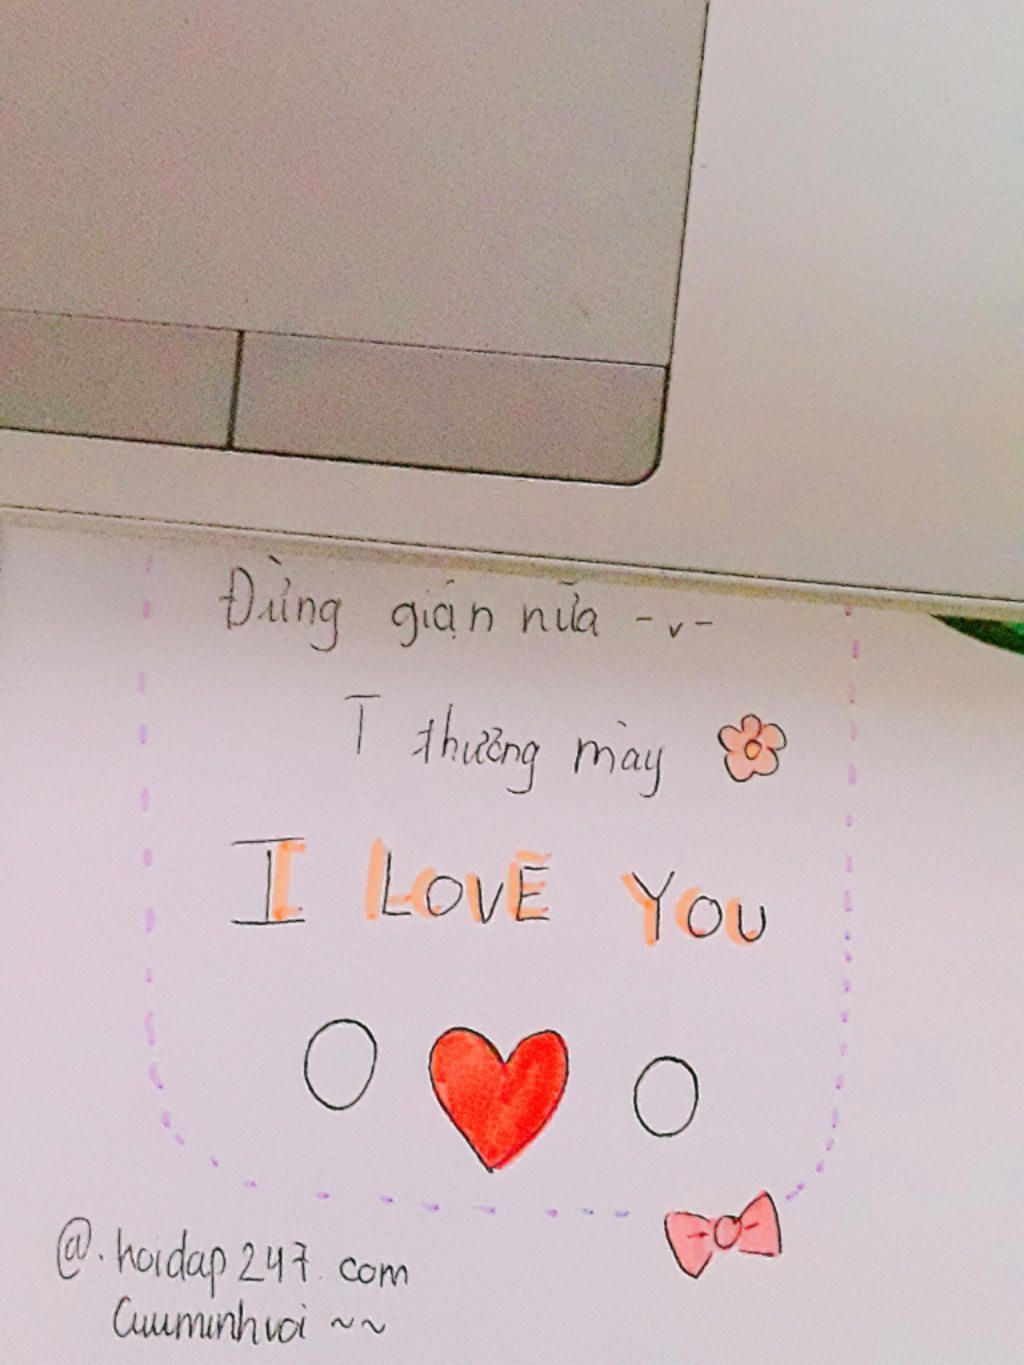 Đừng giận nữa -v-
T thương mày
I LOVE YOU
@.hoidap247.com
Cuuminhvoi ~~